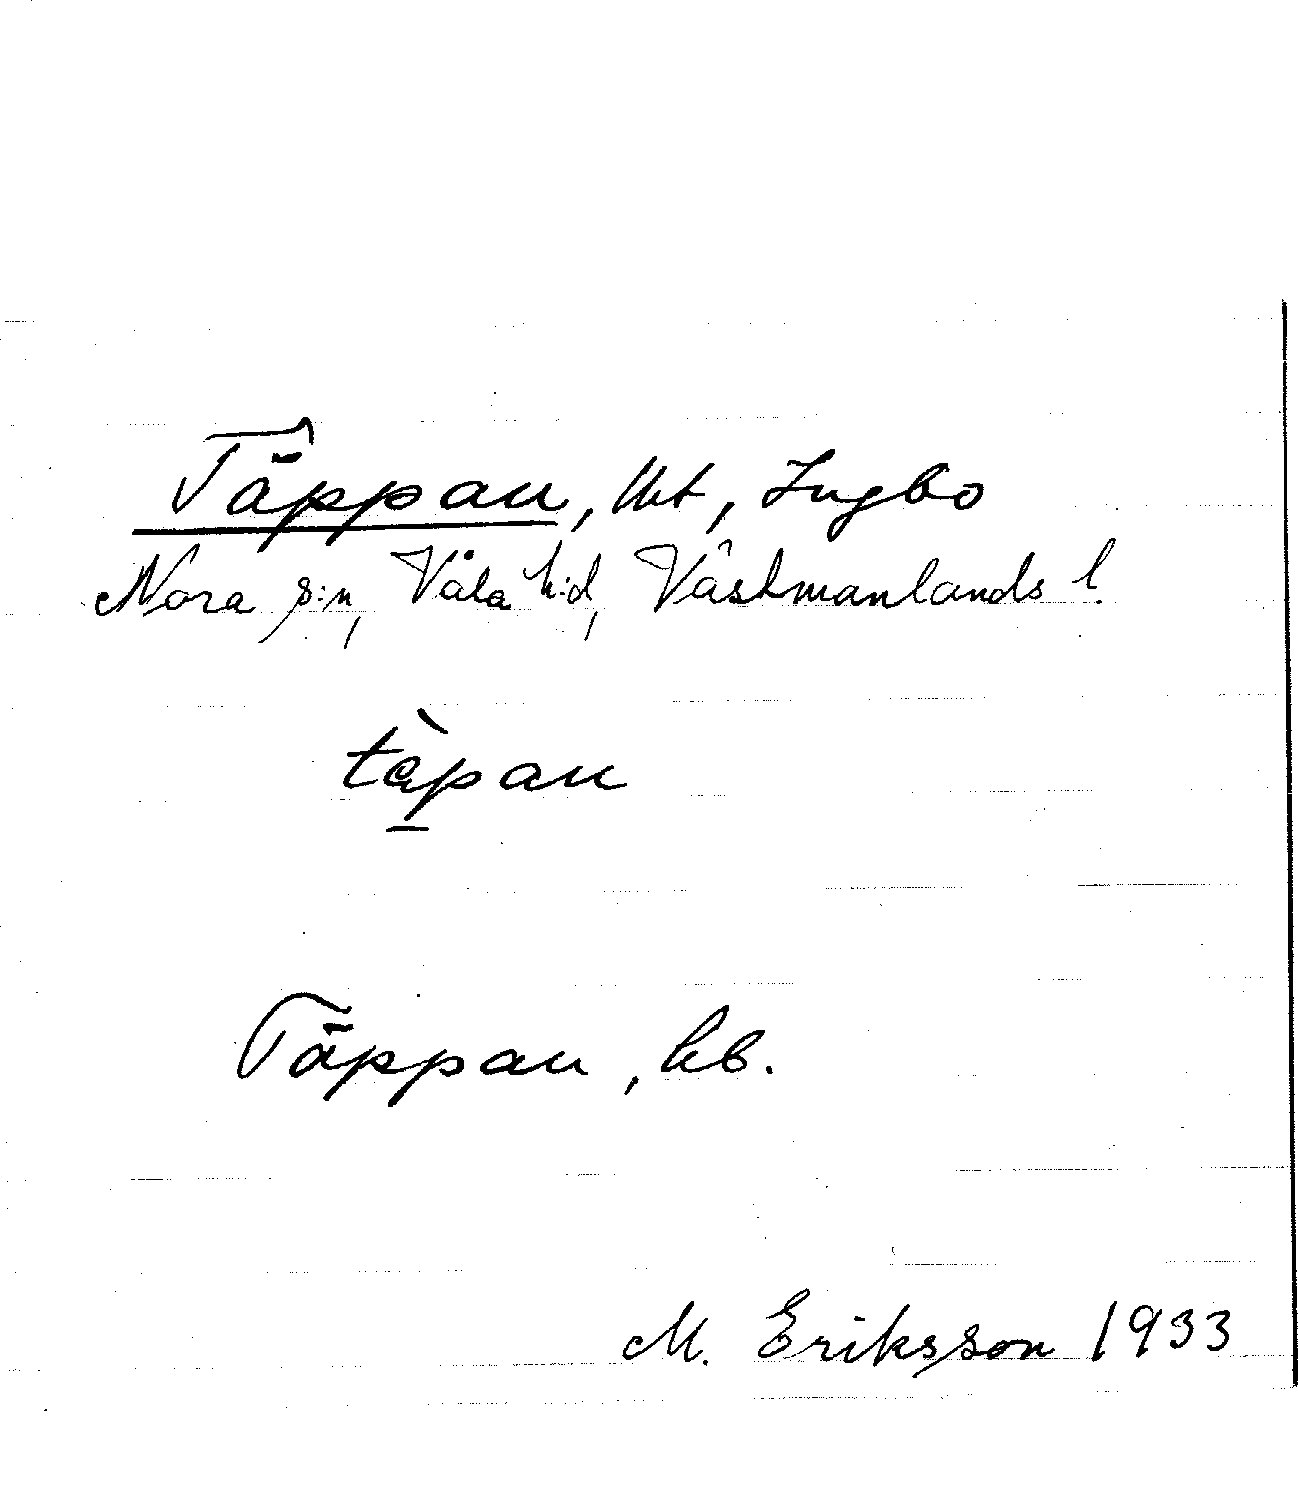 Täppan, lht, Ingbo
Nora s:n, Våla h:d, Västmanlands l.
tàpan
Täppan, hb.
M. Eriksson 1933